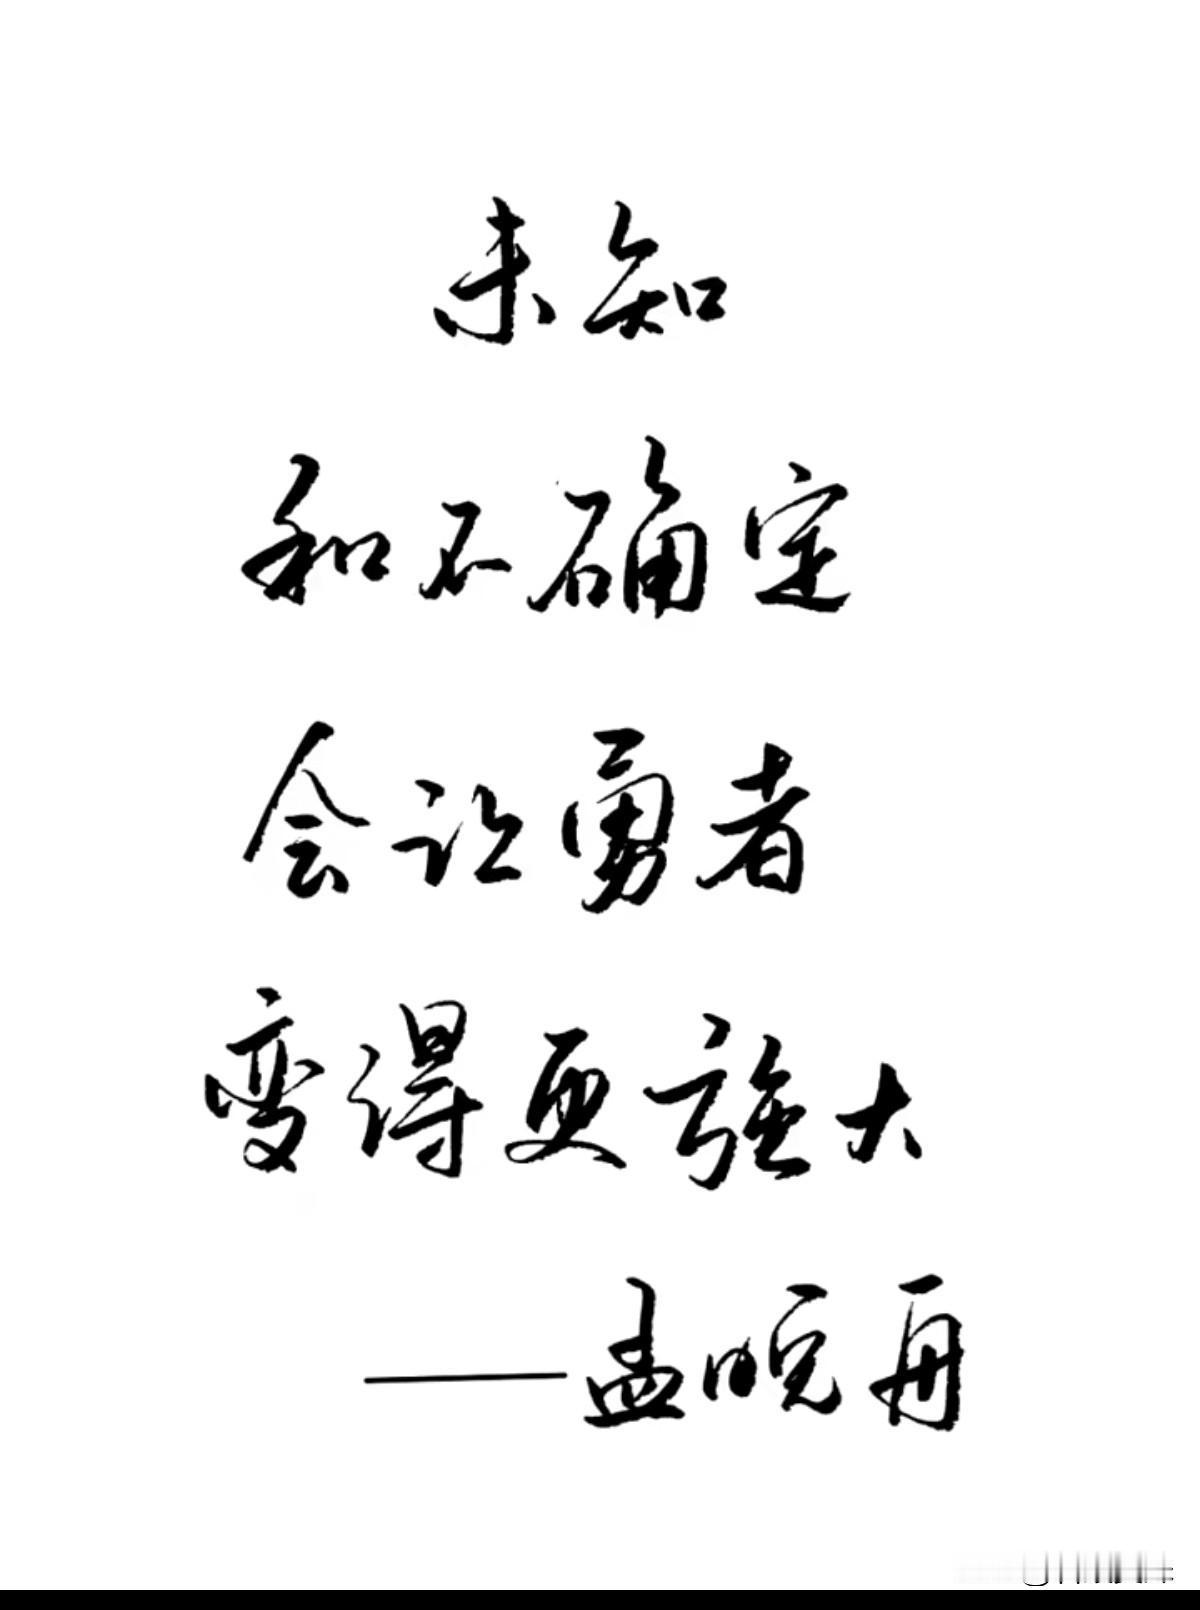 未知
和不确定
会让勇者
变得更强大
——孟晚舟